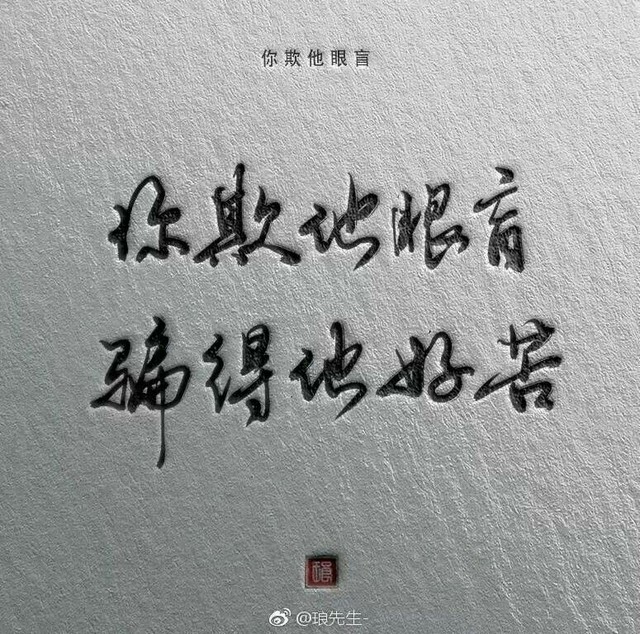 你欺他眼盲
你欺他眼盲
骗得他好苦
琅
@琅先生-